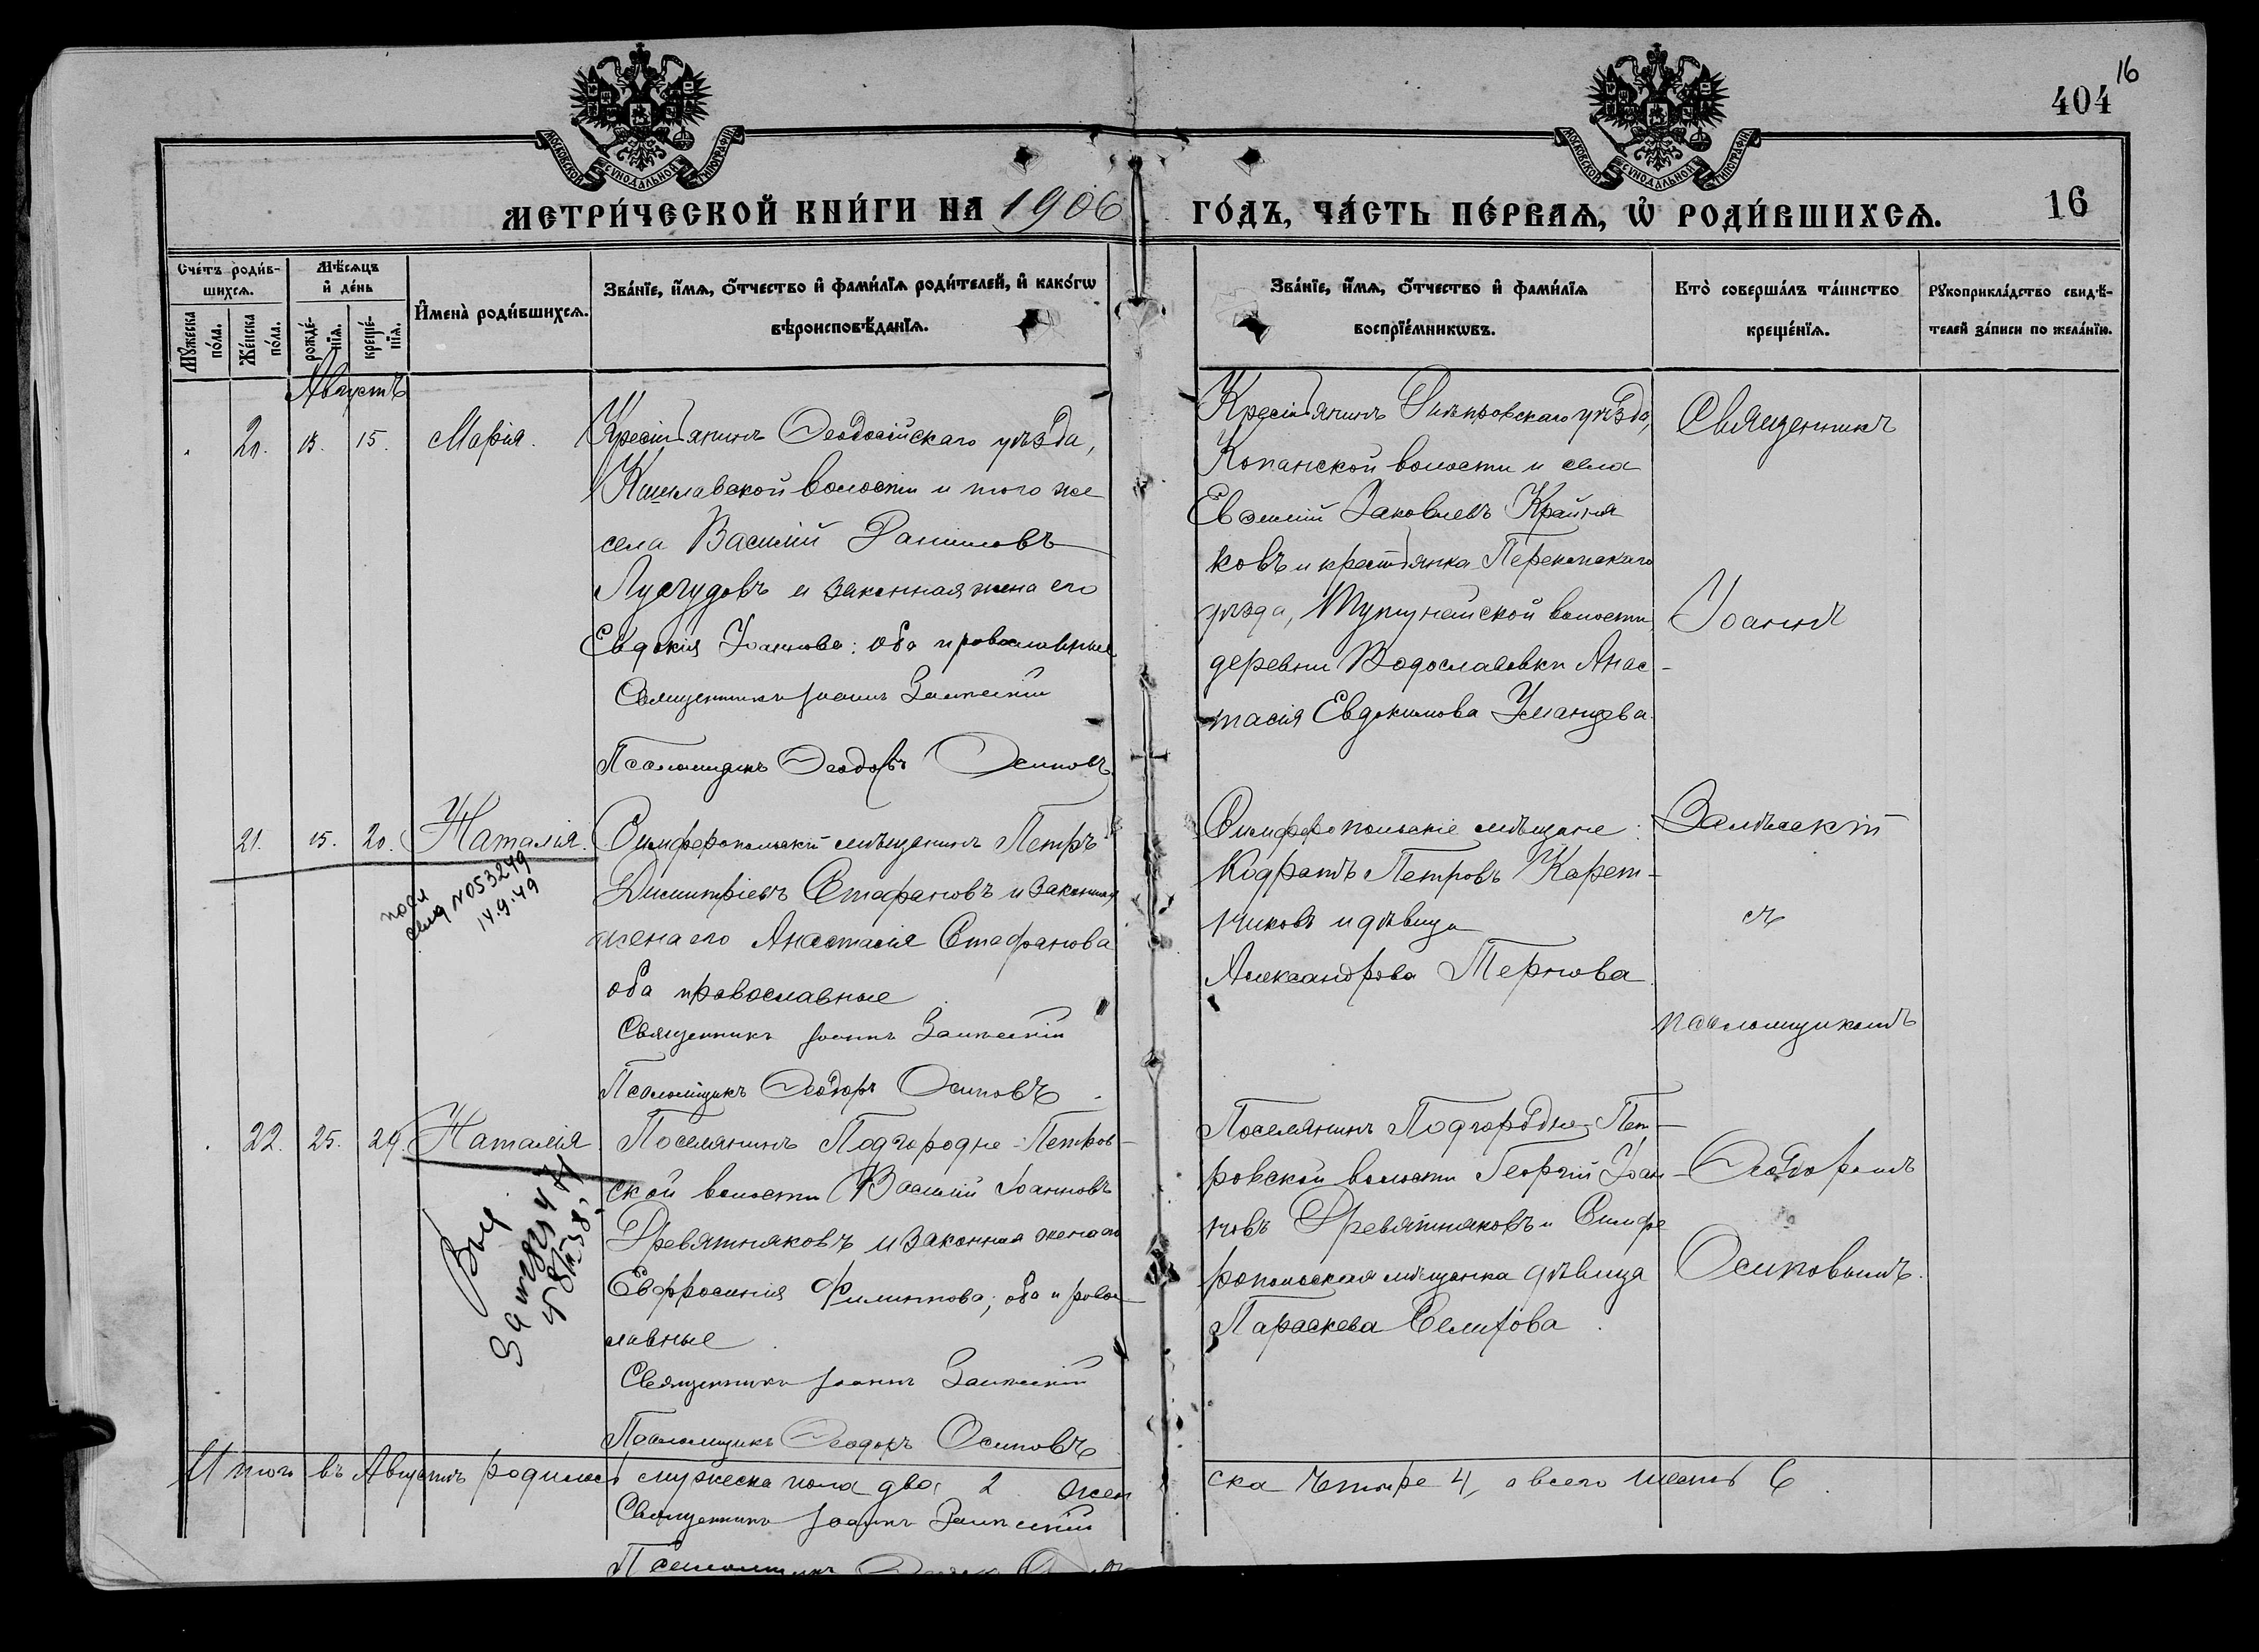 16
404
МОСКОВСКОЙ СѴНОДАЛЬНОЙ ТИПОГРАФІИ
МОСКОВСКОЙ СѴНОДАЛЬНОЙ ТИПОГРАФІИ
МЕТРИ́ЧЕСКОЙ КНИ́ГИ НА 1906 ГО́ДЪ, ЧА́СТЬ ПЕ́РВАѦ, Ѡ҆ РОДИ́ВШИХСѦ.
16
Сче́тъ роди́в-
шихсѧ.
Мꙋ́жеска по́ла.
Же́нска по́ла.
Мѣ́сѧцъ
и҆ де́нь
рожде́-
нїѧ.
креще́-
нїѧ.
И҆мена̀ роди́вшихсѧ.
Зва́нїе, и҆́мѧ, ѻ҆́тчество и҆ фами́лїѧ роди́телей, и҆ како́гѡ
вѣроисповѣ́данїѧ.
Зва́нїе, и҆́мѧ, ѻ҆́тчество и҆ фами́лїѧ
воспрїе́мникѡвъ.
Кто̀ соверша́лъ та́инство
креще́нїѧ.
Рꙋкоприкла́дство свидѣ́-
телей за́писи по жела́нїю.
Августъ
20. 13. 15. Марія.
Крестьянинъ Ѳеодосійскаго уѣзда,
Кишлавской волости и того же
села Василій Даниловъ
и законная жена его
Евдокія Іоаннова; оба православные
Священникъ Іоаннъ Залѣсскій
Псаломщикъ Ѳеодоръ Осиповъ
Крестьянинъ Днѣпровскаго уѣзда,
Копанской волости и села
Евѳимій Яковлевъ Крайня
ковъ и крестьянка Перекопскаго
уѣзда, волости,
деревни Анас-
тасія Евдокимова Уманцева.
Священникъ
Іоаннъ
21. 15. 20. Наталія.
посл
свид N 053249
14.9.49
Симферопольскій мѣщанинъ Петръ
Димитріевъ Стафановъ и законная
жена его Анастасія Стафанова
оба православные
Священникъ Іоаннъ Залѣсскій
Псаломщикъ Ѳеодоръ Осиповъ
Симферопольскіе мѣщане:
Кодратъ Петровъ Карет-
никовъ и дѣвица
Александрова Тернова.
Залѣсскій
съ
псаломщикомъ
22. 25. 29. Наталія.
Поселянинъ Подгородне-Петров-
ской волости Василій Іоанновъ
Древятняковъ и законная жена его
Евфросинія Филиппова; оба право
славные
Священникъ Іоаннъ Залѣсскій
Псаломщикъ Ѳеодоръ Осиповъ
Поселянинъ Подгородне-Пет-
ровской волости Георгій Іоан-
новъ Древятняковъ и Симфе
ропольская мѣщанка дѣвица
Параскева Селихова.
Ѳеодоромъ
Осиповымъ.
Итого въ Августѣ родилось мужеска пола два 2 жен
ска четыре 4, а всего шесть 6.
Священникъ Іоаннъ Залѣсскій
Псаломщикъ